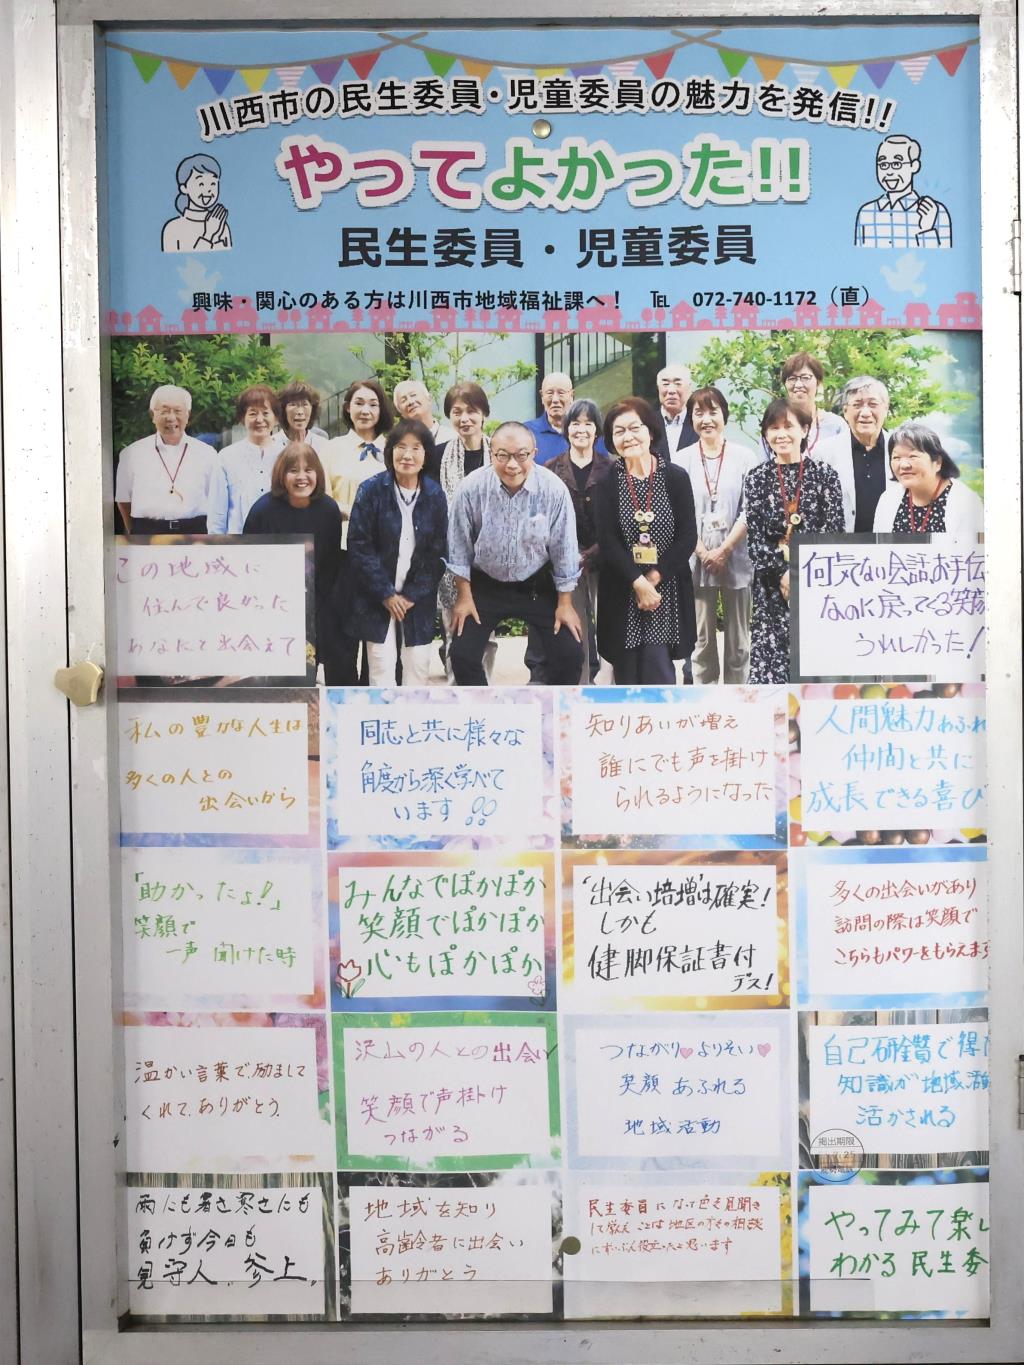 川西市の民生委員・児童委員の魅力を発信!!
やってよかった!!
民生委員・児童委員
興味・関心のある方は川西市地域福祉課へ! ℡ 072-740-1172（直）
この地域に
住んで良かった
あなたと出会えて
何気ない会話、お手伝
なのに戻ってくる笑顔
うれしかった!
私の豊かな人生は
多くの人との
出会いから
同志と共に様々な
角度から深く学べて
います
知りあいが増え
誰にでも声を掛け
られるようになった
人間魅力あふれ
仲間と共に
成長できる喜び
「助かったよ!」
笑顔で
一声 聞けた時
みんなでぽかぽか
笑顔でぽかぽか
心もぽかぽか
"出会い倍増"は確実!
しかも
健脚保証書付
デス!
多くの出会いがあり
訪問の際は笑顔で
こちらもパワーをもらえます
温かい言葉で励まして
くれて、ありがとう。
沢山の人との出会い
笑顔で声掛け
つながる
つながり♥よりそい♥
笑顔 あふれる
地域活動
自己研鑽で得た
知識が地域活動
活かされる
掲出期限
雨にも暑さ寒さにも
負けず今日も
見守人、参上。
地域を知り
高齢者に出会い
ありがとう
民生委員になって色々見聞き
して教え ことは地区の方々の相談
にずいぶん役立ったと思います
やってみて楽し
わかる民生委